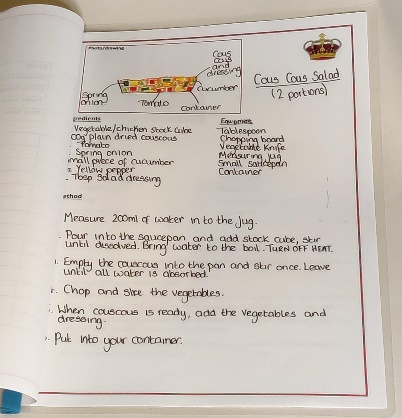 Photo/drawing
Cous
Cous
and
dressing
Cucumber
Spring
onion
Tomato
Container
Cous Cous Salad
(2 portions)
gredients
Vegetable/chicken stock cube
plain dried couscous
Tomato
Spring onion
mall piece of cucumber
Yellow pepper
Tbsp Salad dressing
Equipment
Tablespoon
Chopping board
Vegetable Knife
Measuring jug
Small saucepan
Container
ethod
Measure 200ml of water in to the jug.
Pour into the saucepan and add stock cube, stir
until dissolved. Bring water to the boil. TURN OFF HEAT.
Empty the couscous into the pan and stir once. Leave
until all water is absorbed.
Chop and slice the vegetables.
When couscous is ready, add the vegetables and
dressing.
Put into your container.